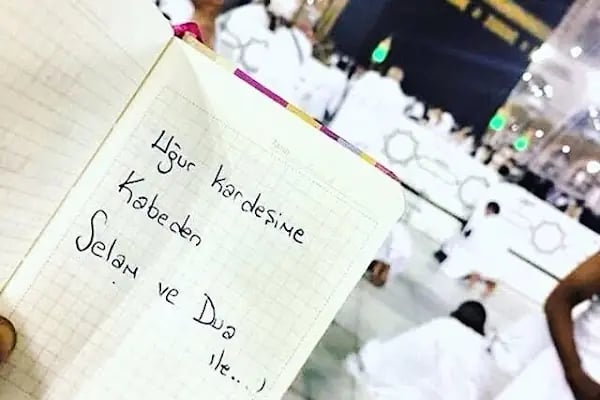 Uğur kardeşime
Kabeden
Selam ve Dua
ile....)